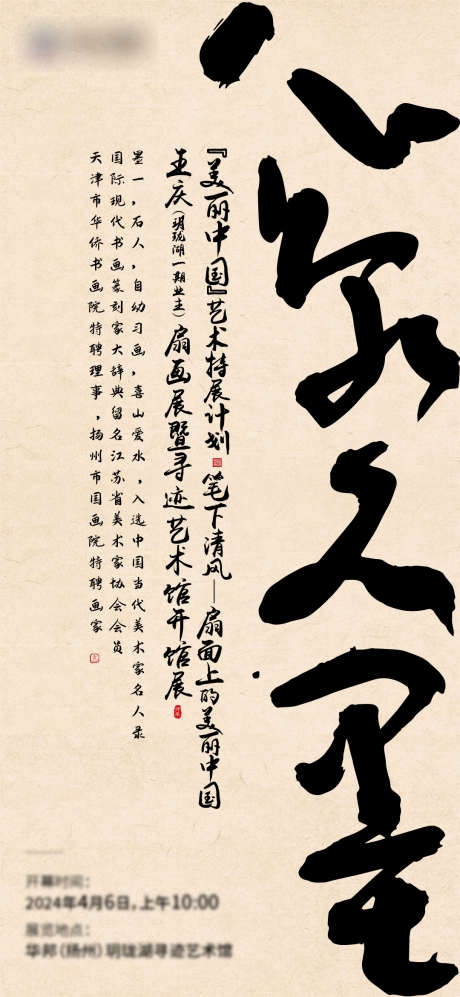 『美丽中国』艺术特展计划 笔下清风—扇面上的美丽中国
王庆(玥珑湖一期业主)扇画展暨寻迹艺术馆开馆展
墨一,石人,自幼习画,喜山爱水,入选中国当代美术家名人录
国际现代书画篆刻家大辞典留名江苏省美术家协会会员
天津市华侨书画院特聘理事,扬州市国画院特聘画家
开幕时间:
2024年4月6日,上午10:00
展览地点:
华邦(扬州)玥珑湖寻迹艺术馆